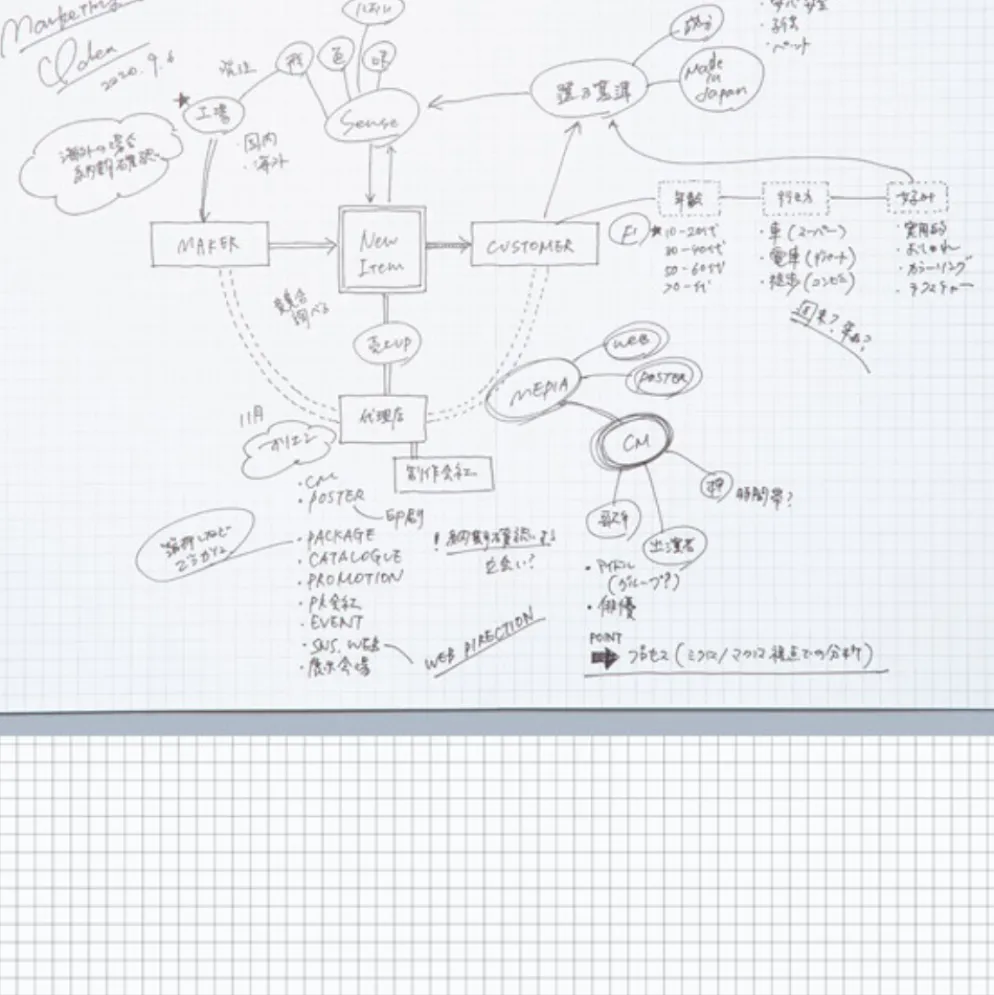 Marketing
Idea
2020.9.6
発注
形
色
味
Sense
工場
・国内
・海外
海外の場合
納期確認
選ぶ基準
成分
Made
in
Japan
・子供
・ペット
MAKER
New
Item
CUSTOMER
F1
年齢
★10-20代
30-40代
50-60代
70-代
行き方
・車(スーパー)
・電車(デパート)
・徒歩(コンビニ)
好み
・実用的
・おしゃれ
・カラーリング
・テクスチャー
週末?平日?
競合
調べる
売上UP
代理店
制作会社
11月
オリエン
・CM
・POSTER
印刷
・PACKAGE
・CATALOGUE
・PROMOTION
・PR会社
・EVENT
・SNS, WEB
・展示会場
WEB DIRECTION
!納期確認する
立会い?
MEDIA
WEB
POSTER
CM
時間帯?
出演者
・アイドル
(グループ?)
・俳優
POINT
プロセス(ミクロ/マクロ視点での分析)